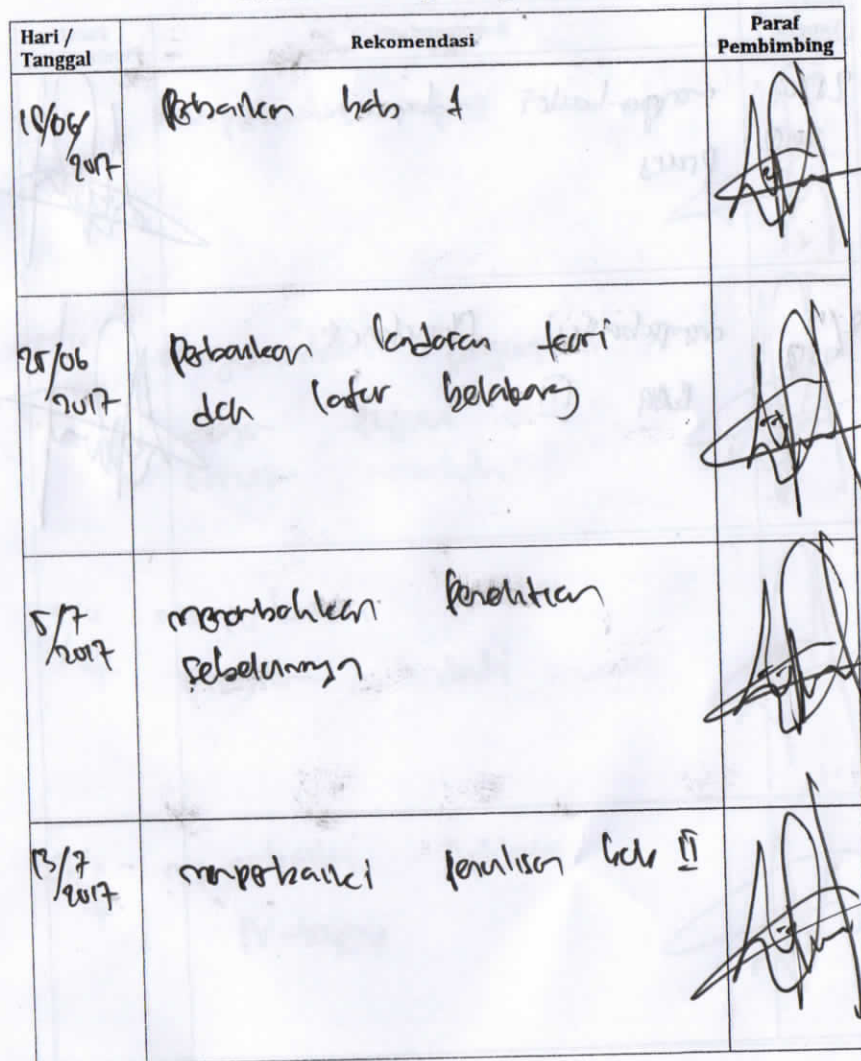 Hari /
Tanggal
Rekomendasi
Paraf
Pembimbing
/06/
2017
Perbaikan bab 1
/06
2017
Perbaikan landasan teori
dan latar belakang
5/7
2017
menambahkan penelitian
sebelumnya
13/7
2017
memperbaiki penulisan bab II